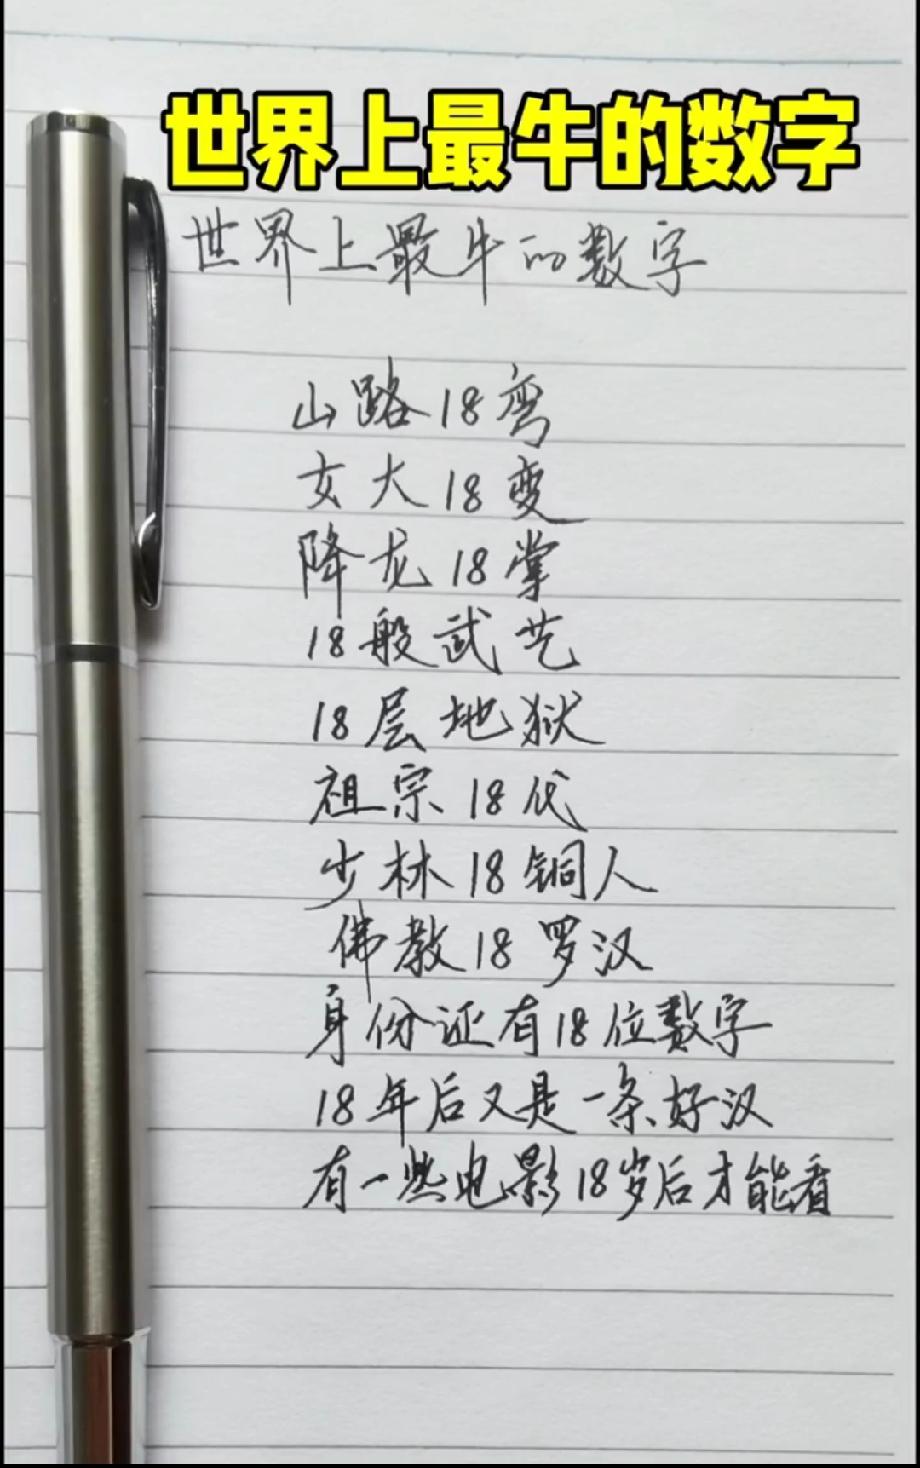 世界上最牛的数字
世界上最牛的数字
山路18弯
女大18变
降龙18掌
18般武艺
18层地狱
祖宗18代
少林18铜人
佛教18罗汉
身份证有18位数字
18年后又是一条好汉
有一些电影18岁后才能看